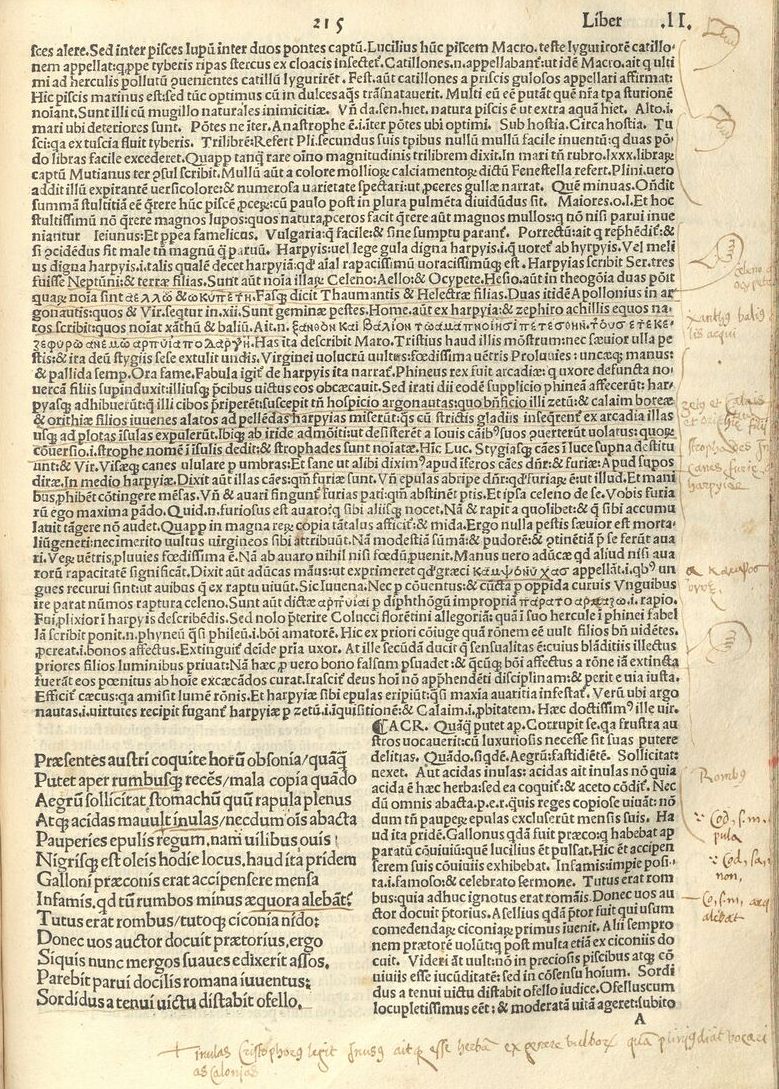 215
Liber .II.
sces alere. Sed inter pisces lupũ inter duos pontes captũ. Lucilius hũc piscem Macro. teste lyguritorẽ catillo-
nem appellat: q̃ppe tyberis ripas stercus ex cloacis insectet̃. Catillones .n. appellabant̃: ut idẽ Macro. ait q ulti
mi ad herculis pollutũ ꝓuenientes catillũ lygurirẽt. Fest. aũt catillones a priscis gulosos appellari affirmat:
Hic piscis marinus est: sed tũc optimus cũ in dulces aq̃s trãsnatauerit. Multi eũ eẽ putãt quẽ nr̃a tp̃a sturionẽ
noiant. Sunt illi cũ mugillo naturales inimicitiæ. Vñ da. sen. hiet. natura piscis ẽ ut extra aquã hiet. Alto .i.
mari ubi deteriores sunt. Põtes ne iter. Anastrophe ẽ .i. iter põtes ubi optimi. Sub hostia. Circa hostia. Tu
sci: qa ex tuscia fluit tyberis. Trilibrẽ: Refert Pli. secundus suis tpibus nullũ mullũ facile inuentũ: q duas põ-
do libras facile excederet. Quapp̱ tanq̃ rare oĩno magnitudinis trilibrem dixit. In mari tñ rubro .lxxx. libraꝝ
captũ Mutianus ter ꝓsul scribit. Mullũ aũt a colore mollioꝝ calciamentoꝝ dictũ Fenestella refert. Plini. uero
addit illũ expirantẽ uersicolore: & numerosa uarietate spectari: ut ꝓceres gullæ narrat. Quẽ minuas. Oñdit
summã stultitiã eẽ q̃rere hũc piscẽ ꝓceꝝ: cũ paulo post in plura pulmẽta diuidũdus sit. Maiores. o. I. Et hoc
stultissimũ nõ q̃rere magnos lupos: quos natura ꝓceros facit q̃rere aũt magnos mullos: q nõ nisi parui inue
niantur Ieiunus: Et ppea famelicus. Vulgaria: q facile: & sine sumptu parant̃. Porrectũ: ait q rep̃hẽdit̃: &
si ꝓcidẽdus sit male tñ magnũ q̃ paruũ. Harpyis: uel lege gula digna harpyis .i. q uoret̃ ab hyrpyis. Vel meli
us digna harpyis .i. talis qualẽ decet harpyiã: qd aĩal rapacissimũ uoracissimũq; est. Harpyias scribit Ser. tres
fuisse Neptũni: & terræ filias. Sunt aũt noĩa illaꝝ Celeno: Aello: & Ocypete. Hesio. aũt in theogõia duas põit
quaꝝ noĩa sint αελλω & ωκυπετη. Fasq; dicit Thaumantis & Helectræ filias. Duas itidẽ Apollonius in ar-
gonautis: quos & Vir. seq̃tur in .xii. Sunt geminæ pestes. Home. aũt ex harpyia: & zephiro achillis equos na-
tos scribit: quos noiat xãthũ & baliũ. Ait .n.
Has ita describit Maro. Tristius haud illis mõstrum: nec sæuior ulla pe
stis: & ira deũ stygiis sese extulit undis. Virginei uolucrũ uultus: fœdissima uẽtris Proluuies: uncæq; manus:
& pallida semp. Ora fame. Fabula igit̃ de harpyis ita narrat̃. Phineus rex fuit arcadiæ: q uxore defuncta no-
uercã filiis supinduxit: illiusq; p̃cibus uictus eos obcæcauit. Sed irati dii eodẽ supplicio phineã affecerũt: har-
pyasq; adhibuerũt: q illi cibos p̃riperẽt: suscepit tñ hospicio argonautas: quo bñficio illi zetũ: & calaim boreæ
& orithiæ filios iuuenes alatos ad pellẽdas harpyias miserũt: q̃s cũ strictis gladiis inseq̃rent̃ ex arcadia illas
usq; ad plotas ĩsulas expulerũt. Ibiq; ab iride admõiti: ut desisterẽt a Iouis caĩbꝰ suos ꝓuerterũt uolatus: quoꝝ
cõuersio .i. strophe nomẽ ĩsulis dedit: & strophades sunt noiatæ. Hic Luc. Stygiasq; cães ĩ luce supna destitu
unt: & Vir. Visæq; canes ululare p umbras: Et sane ut alibi diximꝰ apud ĩferos cães dñr: & furiæ: Apud supos
diræ. In medio harpyiæ. Dixit aũt illas cães: qm̃ furiæ sunt. Vñ epulas abripe dñr: qd furiaꝝ ẽ: ut illud. Et mani
bus ꝓhibẽt cõtingere mẽsas. Vñ & auari singunt̃ furias pati: qm̃ abstinẽt ptis. Et ipsa celeno de se. Vobis furia
rũ ego maxima pãdo. Quid .n. furiosius est auaro: q sibi aliisq; nocet. Nã & rapit a quolibet: & q̃ sibi accumu
lauit tãgere nõ audet. Quapp̱ in magna reꝝ copia tãtalus afficit̃: & mida. Ergo nulla pestis sæuior est morta-
liũ generi: nec imerito uultus virgineos sibi attribuũt. Nã modestiã sũmã: & pudorẽ: & ꝓtinẽtiã p se ferũt aua
ri. Veꝝ uẽtris pluuies fœdissima ẽ. Nã ab auaro nihil nisi fœdũ ꝓuenit. Manus uero aducæ qd aliud nisi aua
rorũ rapacitatẽ significãt. Dixit aũt aducas mãus: ut exprimeret qd græci καμψονυχασ appellãt .i. qbꝰ un
gues recurui sint: ut auibus q̃ ex raptu uiuũt. Sic Iuuena. Nec p cõuentus: & cũcta p oppida curuis Vnguibus
ire parat nũmos raptura celeno. Sunt aũt dictæ αρπυιαι p diphthõgũ impropriã παρατο αρπαζω .i. rapio.
Fui plixiorĩ harpyis describẽdis. Sed nolo p̃terire Colucci florẽtini allegoriã: quã ĩ suo hercule ĩ phinei fabel
lã scribit ponit .n. phyneũ q̃si phileũ .i. bõi amatorẽ. Hic ex priori cõiuge quã rõnem eẽ uult filios bñ uidẽtes.
ꝓcreat .i. bonos affectus. Extinguit̃ deĩde pria uxor. At ille secũdã ducit q̃ sensualitas ẽ: cuius blãditiis illectus
priores filios luminibus priuat: Nã hæc ꝓ uero bono falsum psuadet: & q̃cũq; bõi affectus a rõne iã extincta
fuerãt eos pœnitus ab hoĩe excæcãdos curat. Irascit̃ deus hoĩ nõ app̃hendẽti disciplinam: & perit e uia iusta.
Efficit̃ cæcus: qa amisit lumẽ rõnis. Et harpyiæ sibi epulas eripiũt: q̃si maxia auaritia infestat̃. Verũ ubi argo
nautas .i. uirtutes recipit fugant̃ harpyiæ p zetũ .i. ĩquisitionẽ: & Calaim .i. ꝓbitatem. Hæc doctissimꝰ ille uir.
Præsentes austri coquite horũ obsonia/quãq̃
Putet aper rumbusq; recẽs/mala copia quãdo
Aegrũ sollicitat stomachũ quũ rapula plenus
Atq; acidas mauult inulas/necdum oĩs abacta
Pauperies epulis regum, nam uilibus ouis
Nigrisq; est oleis hodie locus, haud ita pridem
Galloni præconis erat accipensere mensa
Infamis. qd tũ rombos minus æquora alebãt:
Tutus erat rombus/tutoq; ciconia nido:
Donec uos auctor docuit prætorius, ergo
Siquis nunc mergos suaues edixerit assos,
Parebit parui docilis romana iuuentus:
Sordidus a tenui uictu distabit ofello.
ACR. Quãq̃ putet ap. Corrupit se. qa frustra au
stros uocauerit: cũ luxuriosis necesse sit suas putere
delitias. Quãdo. siqdẽ. Aegrũ: fastidiẽtẽ. Sollicitat:
uexet. Aut acidas inulas: acidas ait inulas nõ quia
acida ẽ hæc herba: sed ea coquit̃: & aceto cõdit̃. Nec
dũ omnis abacta. p. e. r. quis reges copiose uiuãt: nõ
dum tñ pauperꝝ epulas excluserũt mensis suis. Ha
ud ita pridẽ. Gallonus qdã fuit præco: q habebat ap
paratũ cõuiuiũ: quẽ lucilius et pulsat. Hic et accipen
serem suis cõuiuiis exhibebat. Infamis: impie posi-
ta .i. famoso: & celebrato sermone. Tutus erat rom
bus: quia adhuc ignotus erat romãis. Donec uos au
ctor docuit p̃torius. Asellius qdã p̃tor fuit qui usum
comedendaꝝ ciconiaꝝ primus ĩuenit. Alii sempro
nem prætorẽ uolũt: q post multa etiã ex ciconiis do
cuit. Videri ãt uult: nõ in preciosis piscibus atq; cõ
uiuiis esse iucũditatẽ: sed in cõsensu hoium. Sordi
dus a tenui uictu distabit ofello iudice. Ofelluscum
locupletissimus eẽt: & moderatã uitã ageret: subito
A
Celeno
Ocypete
Xanthus balius
Zetus et Calais
Strophades
Canes furiæ
harpyiæ
Rombus
Cod, s. m.
pula
Cod, sa,
non,
Co, s, m, æq
alebat
+ Inulas Cristophorus legit Inusq; ait esse herbã ex genere bulborꝝ quã
ascalonias